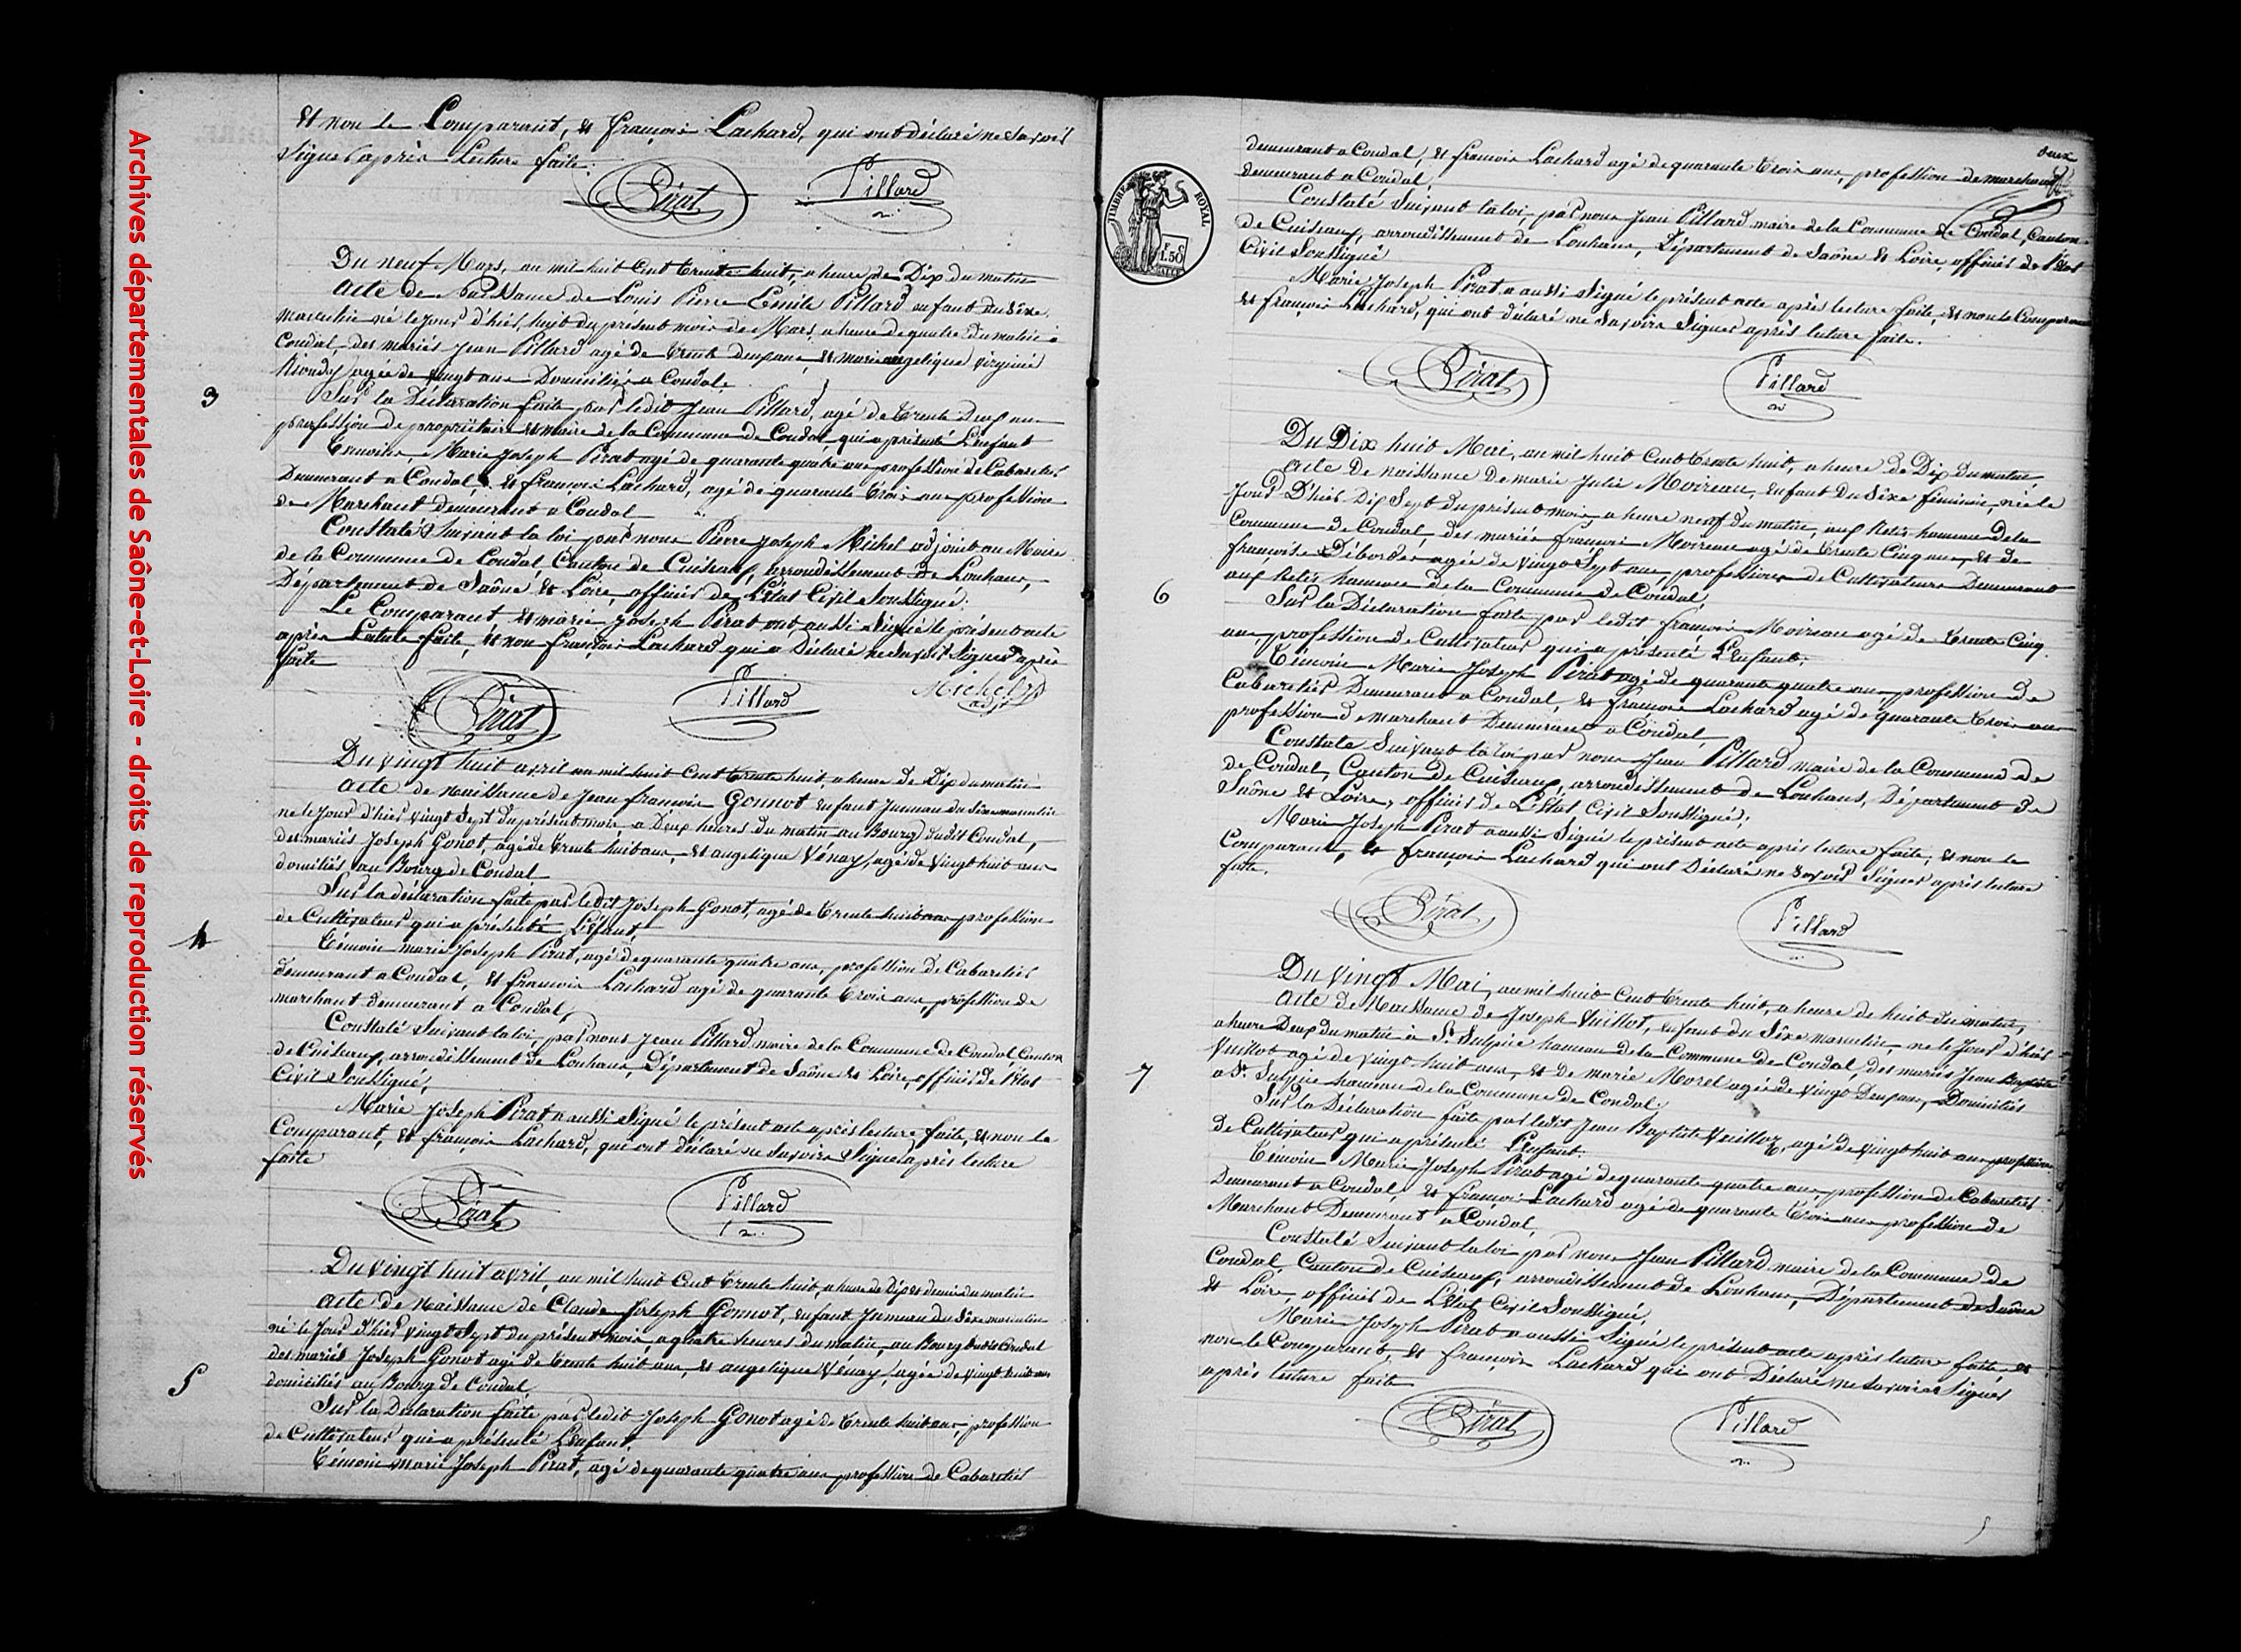 Archives départementales de Saône-et-Loire - droits de reproduction réservés
Et non le Comparant, et françois Lachard, qui ont déclaré ne savoir
signer après Lecture faite.
Pirat Pillard
3
Du neuf Mars, an mil huit Cent trente huit, a heure de Dix du matin
acte de Naissance de Louis Pierre Emile Pillard enfant du Sèxe
masculin né le Jour d'hier, huit du présent mois de Mars, a heure de quatre du matin à
Condal, des mariés Jean Pillard agé de trente deux ans, et marie angelique virginie
agée de vingt ans Domiciliés a Condal.
Sur la Déclaration faite par ledit Jean Pillard, agé de trente Deux ans
profession de propriétaire et maire de la Commune de Condal, qui a présenté L'enfant
Temoins, Marie Joseph Pirat agé de quarante quatre ans profession de Cabaretier
Demeurant a Condal, et françois Lachard, agé de quarante trois ans profession
de Marchant demeurant a Condal
Constaté Suivant la loi par nous Pierre Joseph Michel adjoint au Maire
de la Commune de Condal Canton de Cuiseaux, arrondissement de Louhans,
Département de Saône et Loire, officier de L'Etat Civil Soussigné.
Le Comparant, et marie Joseph Pirat ont aussi signé le présent acte
après Lecture faite, et non françois Lachard qui a Déclaré ne savoir signer après
faite
Pirat Pillard Michel adjt
4
Du vingt huit avril an mil huit Cent trente huit, a heure de Dix du matin
acte de naissance de Jean françois Gonnot enfant Jumeau du Sèxe masculin
né le Jour d'hier vingt Sept du présent mois, a Deux heures du matin au Bourg dudit Condal,
des mariés Joseph Gonot, agé de trente huit ans, et angelique Vénay, agée de vingt huit ans
domiciliés au Bourg de Condal
Sur la déclaration faite par ledit Joseph Gonot, agé de trente huit ans profession
de Cultivateur qui a présenté L'éfant,
Témoin marie Joseph Pirat, agé de quarante quatre ans, profession de Cabaretier
demeurant a Condal, et françois Lachard agé de quarante trois ans, profession de
marchant demeurant a Condal,
Constaté Suivant la loi, par nous Jean Pillard maire de la Commune de Condal Canton
de Cuiseaux, arrondissement de Louhans, Département de Saône et Loire, officier de l'état
Civil Soussigné,
Marie Joseph Pirat a aussi Signé le présent acte après lecture faite, et non le
Comparant, et françois Lachard, qui ont déclaré ne savoir Signer après lecture
faite
Pirat Pillard
5
Du vingt huit avril, an mil huit Cent trente huit, a heure de Dix et demie du matin
acte de Naissance de Claude Joseph Gonnot, enfant Jumeau du Sèxe masculin
né le Jour d'hier vingt Sept du présent mois, a quatre heures du matin, au Bourg dudit Condal
des mariés Joseph Gonot agé de trente huit ans, et angelique Vénay, agée de vingt huit ans
domiciliés au Bourg de Condal
Sur la Déclaration faite par ledit Joseph Gonot agé de trente huit ans, profession
de Cultivateur qui a présenté L'enfant
Témoin marie Joseph Pirat, agé de quarante quatre ans profession de Cabaretier
deux
TIMBRE ROYAL
1.50
demeurant a Condal, et françois Lachard agé de quarante trois ans, profession de marchant
demeurant a Condal
Constaté Suivant la loi, par nous Jean Pillard maire de la Commune de Condal, Canton
de Cuiseaux, arrondissement de Louhans, Département de Saône et Loire, officier de l'état
Civil Soussigné
Marie Joseph Pirat a aussi signé le présent acte après lecture faite, et non le Comparant
et françois Lachard, qui ont déclaré ne savoir Signer après lecture faite.
Pirat Pillard
6
Du Dix huit Mai, an mil huit Cent trente huit, a heure de Dix du matin
acte de naissance de marie Julie Moireau, enfant du Sèxe féminin, née le
Jour D'hier Dix Sept du présent mois a heure neuf du matin, aux hameau de la
Commune de Condal, des mariés françois Moireau agé de trente Cinq ans, et de
françoise Débordes agée de vingt Sept ans, profession de Cultivateurs Demeurant
aux hameau de la Commune de Condal,
Sur la Déclaration faite par ledit françois Moireau agé de trente Cinq
ans profession de Cultivateur qui a présenté L'enfant.
Témoin Marie Joseph Pirat agé de quarante quatre ans profession de
Cabaretier Demeurant a Condal, et françois Lachard agé de quarante trois ans
profession de marchant Demeurant a Condal,
Constaté Suivant la loi par nous Jean Pillard maire de la Commune de
de Condal, Canton de Cuiseaux, arrondissement de Louhans, Département de
Saône et Loire, officier de L'Etat Civil Soussigné,
Marie Joseph Pirat a aussi Signé le présent acte après lecture faite, et non le
Comparant, et françois Lachard qui ont Déclaré ne savoir Signer après lecture
faite.
Pirat Pillard
7
Du vingt Mai, an mil huit Cent trente huit, a heure de huit du matin,
acte de Naissance de Joseph Vuillot, enfant du Sèxe masculin, né le Jour d'hier
a heure Deux du matin à St. Sulpice hameau de la Commune de Condal, des mariés Jean Baptiste
Vuillot agé de vingt huit ans, et de marie Morel agée de vingt Deux ans, Domiciliés
a St. Sulpice hameau de la Commune de Condal.
Sur la Déclaration faite par ledit Jean Baptiste Vuillot, agé de vingt huit ans profession
de Cultivateur qui a présenté L'enfant.
Témoin Marie Joseph Pirat agé de quarante quatre ans, profession de Cabaretier
Demeurant a Condal, et françois Lachard agé de quarante trois ans profession de
Marchant Demeurant a Condal,
Constaté Suivant la loi par nous Jean Pillard maire de la Commune de
Condal Canton de Cuiseaux, arrondissement de Louhans, Département de Saône
et Loire, officier de L'état Civil Soussigné,
Marie Joseph Pirat a aussi Signé le présent acte après lecture faite, et
non le Comparant, et françois Lachard qui ont Déclaré ne savoir Signer
après lecture faite
Pirat Pillard